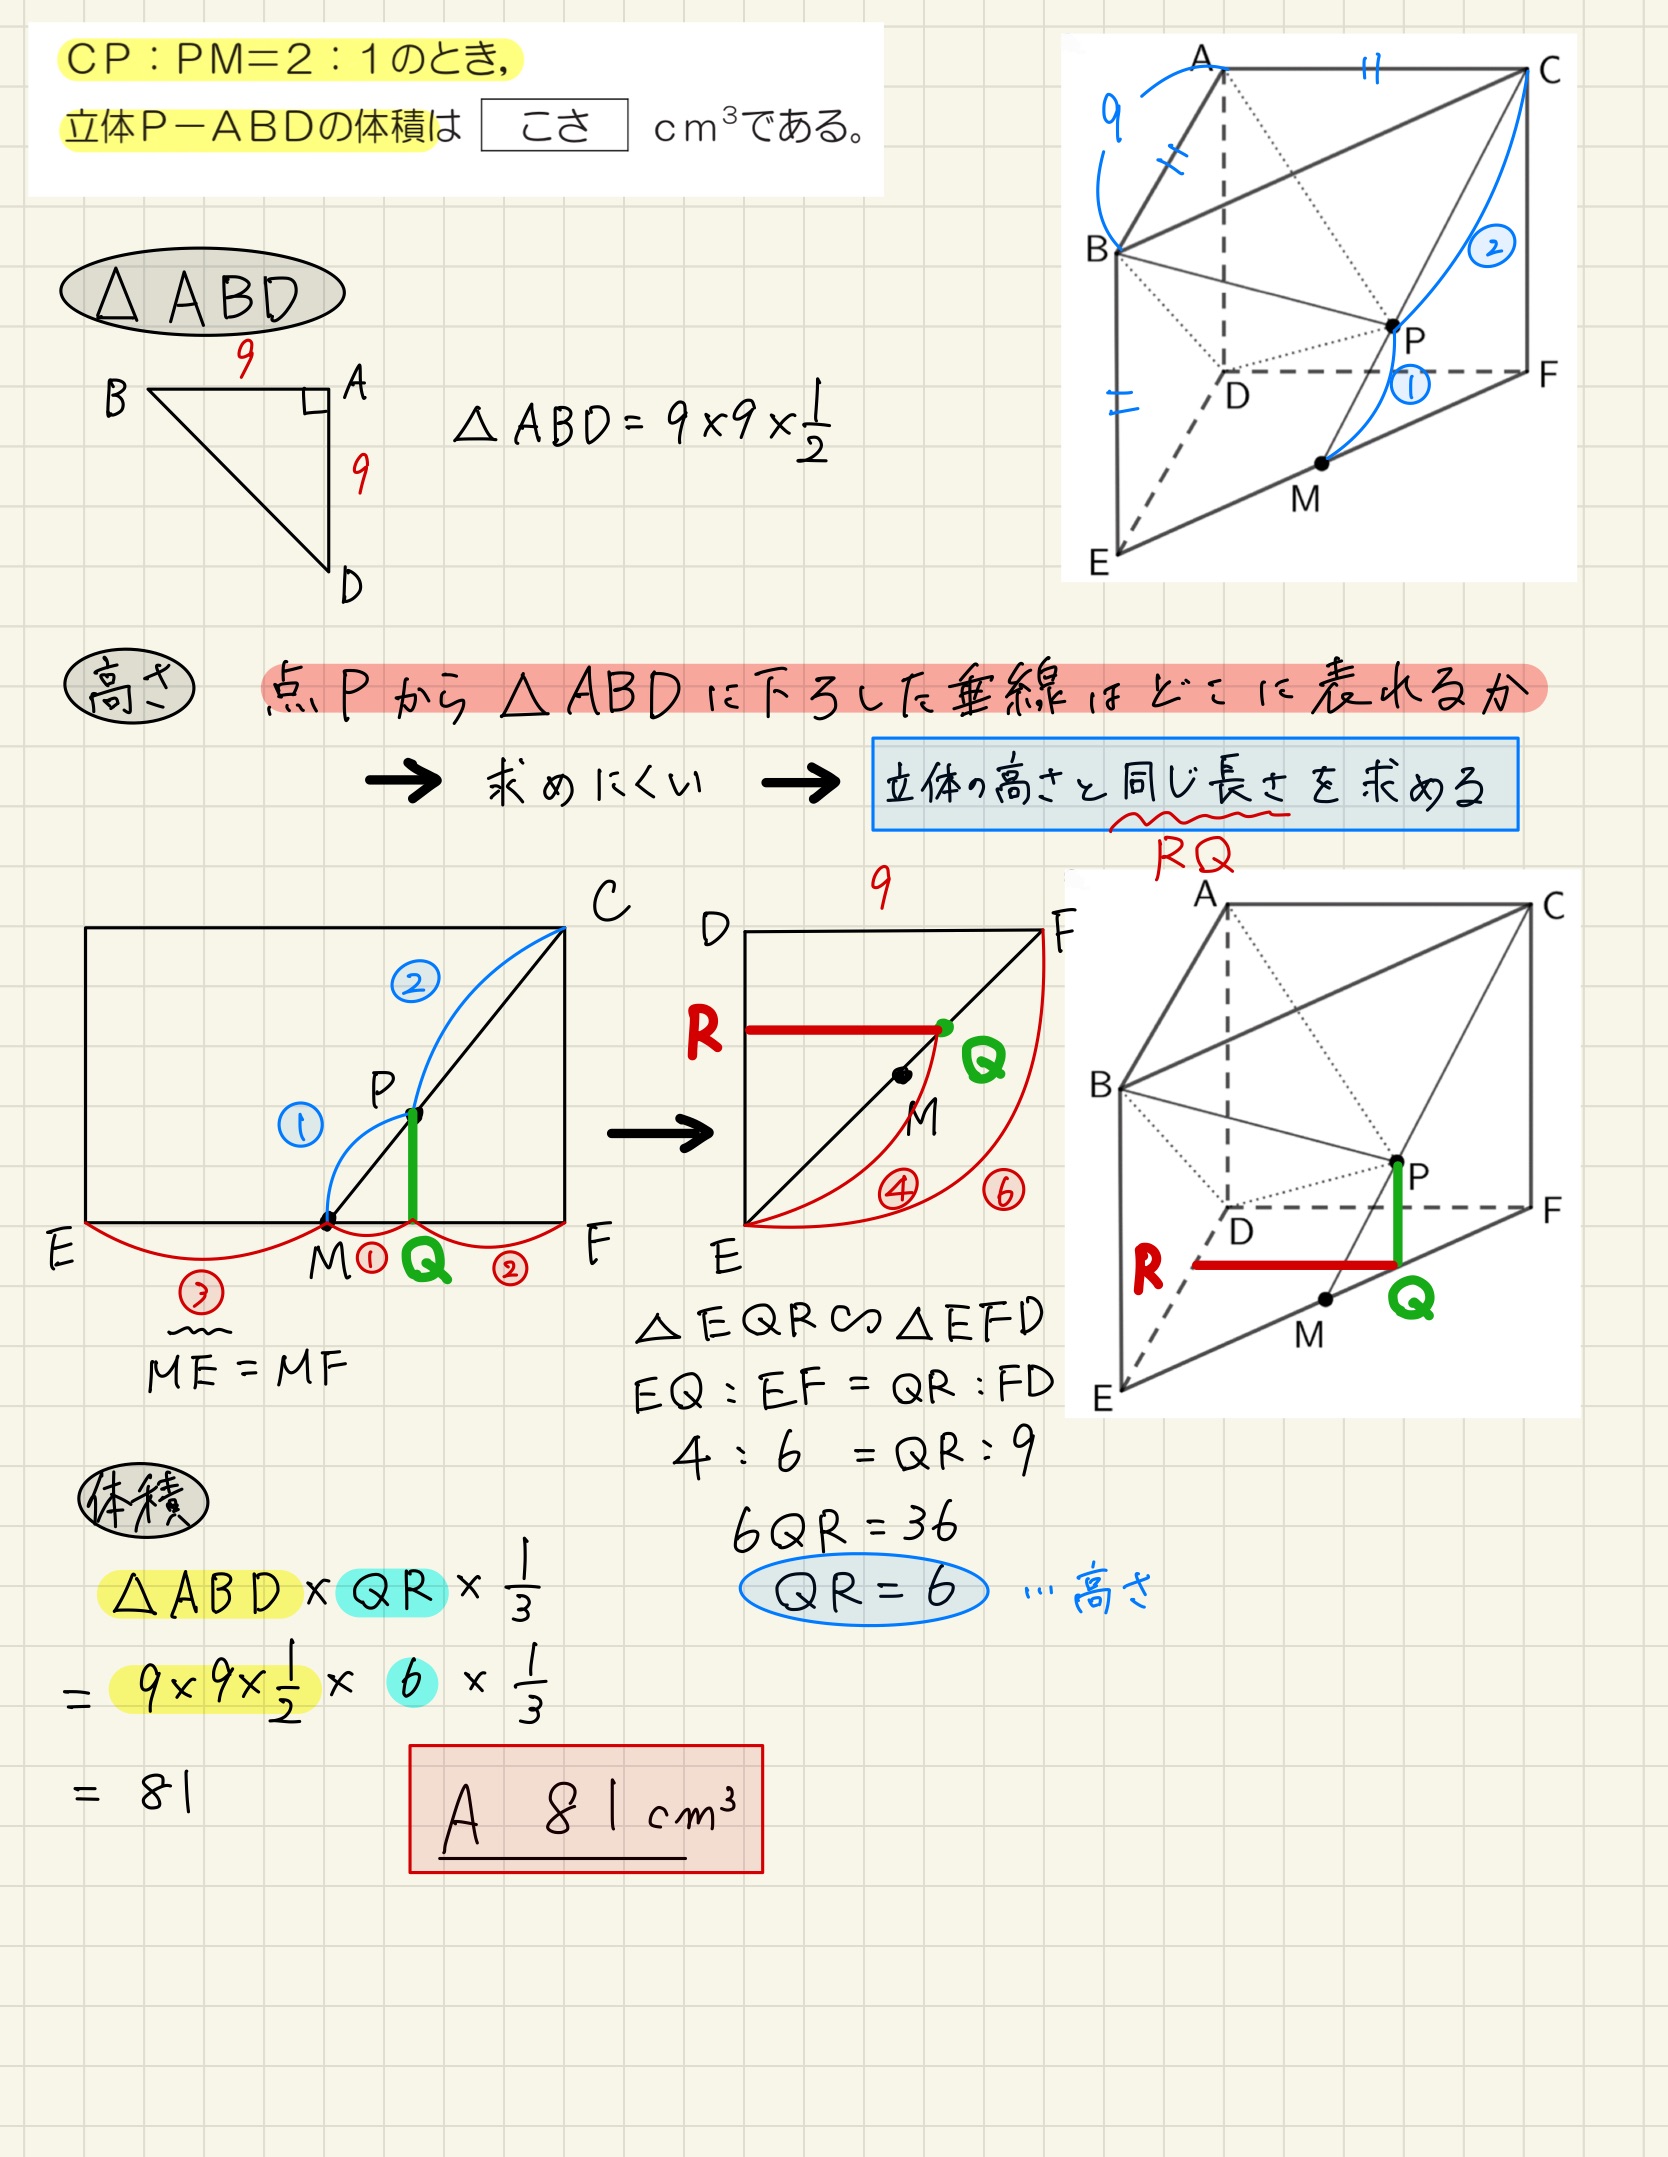 CP:PM=2:1のとき,
立体P-ABDの体積は こさ cm³である。
A
C
9
B
②
P
①
D
F
M
E
△ABD
9
B
A
9
D
△ABD=9×9×1/2
高さ 点Pから△ABDに下ろした垂線はどこに表れるか
→ 求めにくい → 立体の高さと同じ長さを求める
RQ
C
②
P
①
E
M
①
Q
②
F
③
ME=MF
9
D
F
R
Q
M
④
⑥
E
A
C
B
P
D
F
R
Q
M
E
△EQR∽△EFD
EQ:EF=QR:FD
4:6=QR:9
6QR=36
QR=6 …高さ
体積
△ABD×QR×1/3
=9×9×1/2×6×1/3
=81
A 81cm³